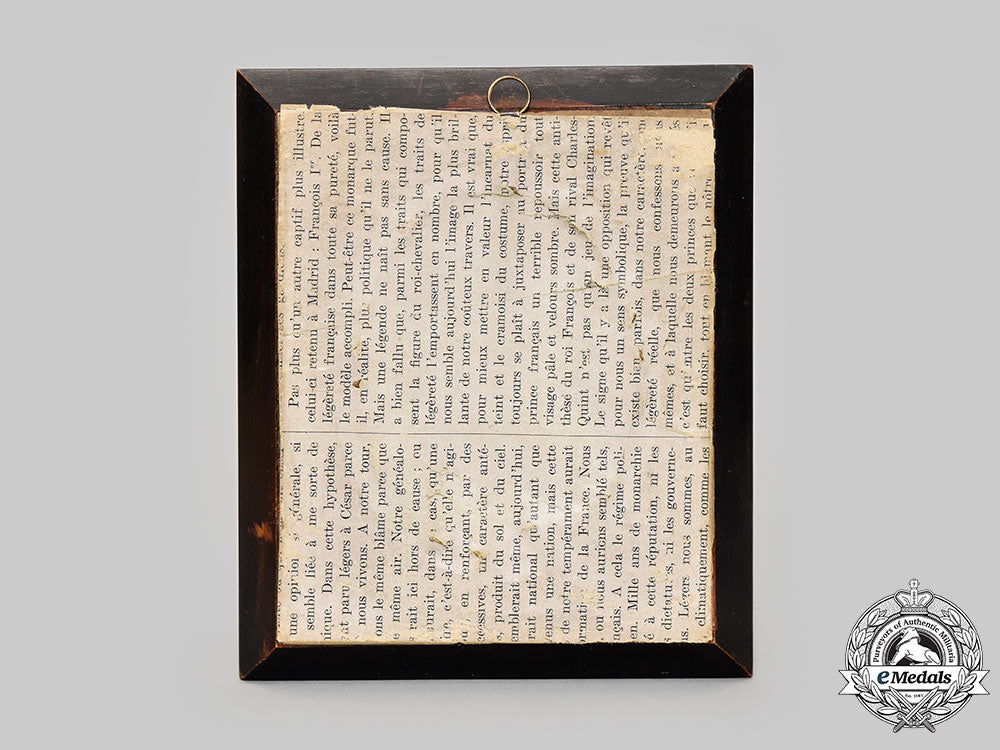 une opinion si générale, si
semble liée à une sorte de
nique. Dans cette hypothèse,
nt paru légers à César parce
nous vivons. A notre tour,
ons le même blâme parce que
e même air. Notre généalo-
rait ici hors de cause ; ou
urait, dans ce cas, qu'une
ire, c'est-à-dire qu'elle n'agi-
en renforçant, par des
cessives, un caractère anté-
e, produit du sol et du ciel.
emblerait même, aujourd'hui,
rait national qu'autant que
venus une nation, mais cette
de notre tempérament aurait
ormation de la France. Nous
ou nous aurions semblé tels,
nçais. A cela le régime poli-
en. Mille ans de monarchie
é à cette réputation, ni les
s dictatures, ni les gouverne-
us. Légers nous sommes, au
climatiquement, comme les
Pas plus qu'un autre captif plus illustre,
celui-ci retenu à Madrid : François Ier. De la
légèreté française dans toute sa pureté, voilà
le modèle accompli. Peut-être ce monarque fut
il, en réalité, plus politique qu'il ne le parut.
Mais une légende ne naît pas sans cause. Il
a bien fallu que, parmi les traits qui compo-
sent la figure du roi-chevalier, les traits de
légèreté l'emportassent en nombre, pour qu'il
nous semble aujourd'hui l'image la plus bril-
lante de notre coûteux travers. Il est vrai que,
pour mieux mettre en valeur l'incarnat du
teint et le cramoisi du costume, notre
toujours se plaît à juxtaposer au portrait du
prince français un terrible repoussoir tout
visage pâle et velours sombre. Mais cette anti-
thèse du roi François et de son rival Charles-
Quint n'est pas qu'un jeu de l'imagination.
Le signe qu'il y a là une opposition qui revêt
pour nous un sens symbolique, la preuve qu'il
existe bien parfois, dans notre caractère, une
légèreté réelle, que nous confessons
mêmes, et à laquelle nous demeurons
c'est qu'entre les deux princes que
faut choisir, tout en blâmant le nôtre
Purveyors of Authentic Militaria
eMedals